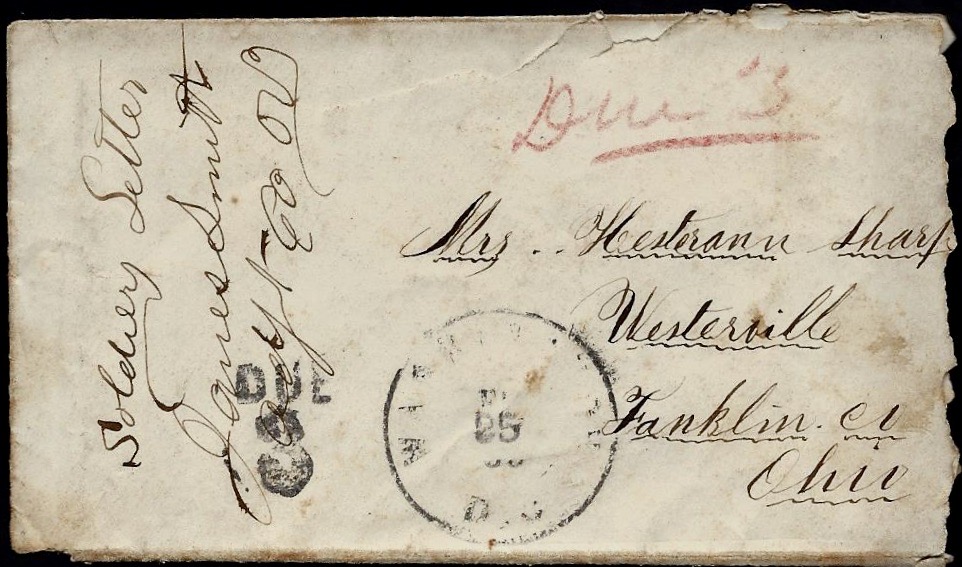 Soldiers Letter
James Smith
Capt Co
Due 3
Mrs .. Hesterann Sharp
Westerville
Fanklin. co
Ohio
DUE
3
WASHINGTON
D.C